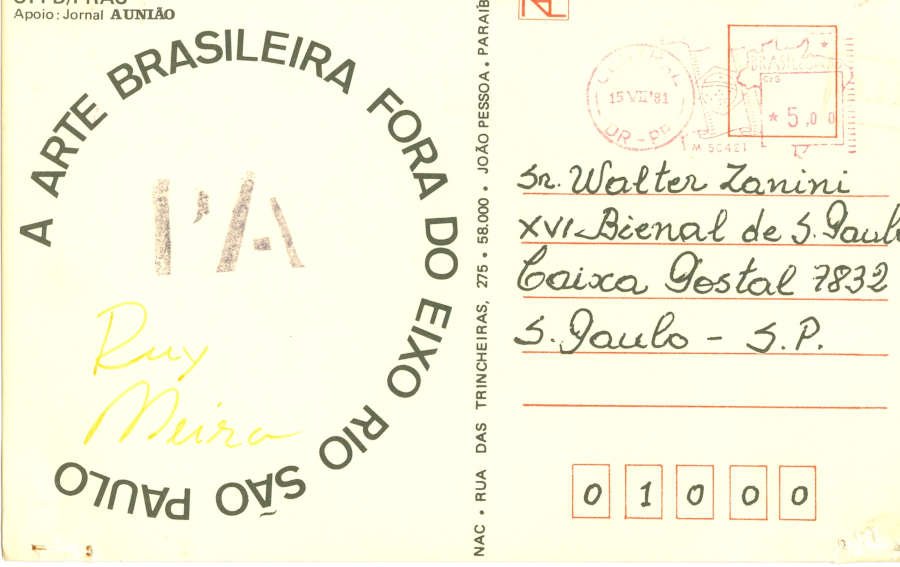 Apoio: Jornal A UNIÃO
A ARTE BRASILEIRA FORA DO EIXO RIO SÃO PAULO
Ruy
Meira
NAC • RUA DAS TRINCHEIRAS, 275 • 58.000 • JOÃO PESSOA • PARAIB
15 VII '81
DR - PE
BRASIL
* 5,00
Sr. Walter Zanini
XVI Bienal de S. Paulo
Caixa Postal 7832
S. Paulo - S.P.
0 1 0 0 0